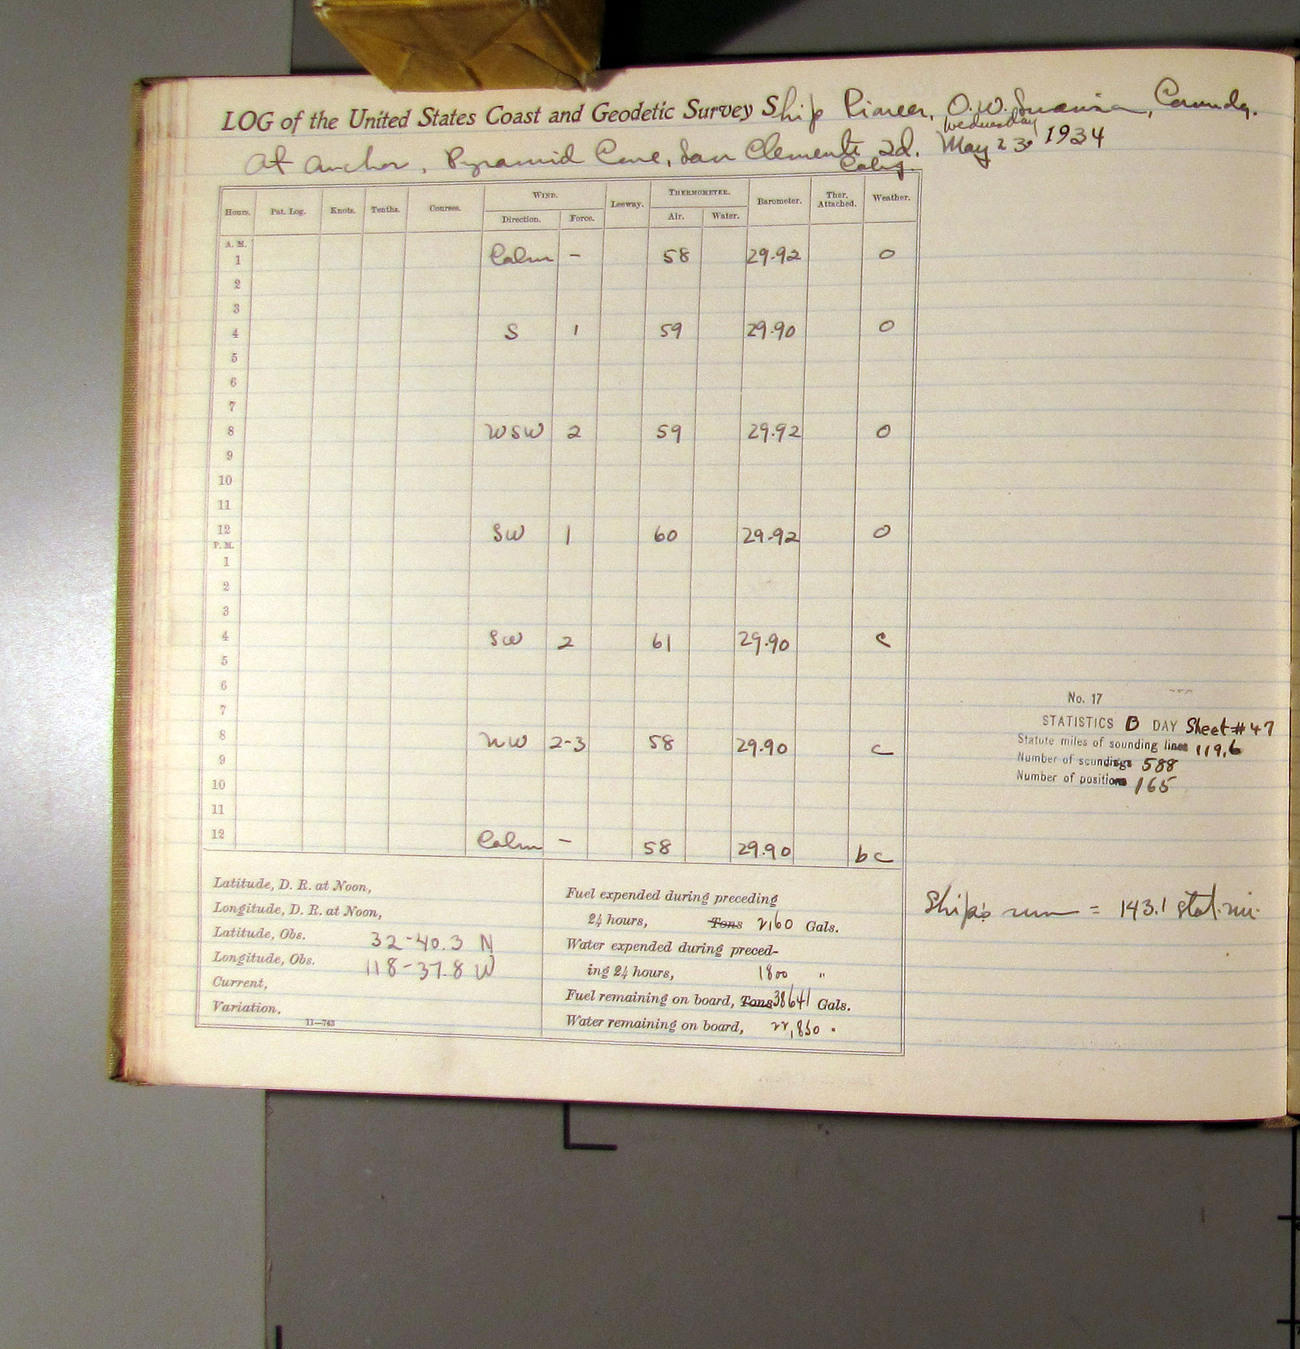 LOG of the United States Coast and Geodetic Survey Ship Pioneer, O.W. Swainson, Commdg.
At anchor, Pyramid Cove, San Clemente Id. Wednesday May 23, 1934
Calif.
Hours. Pat. Log. Knots. Tenths. Courses. WIND. Leeway. THERMOMETER. Barometer. Ther. Attached. Weather.
Direction. Force. Air. Water.
A. M.
1 Calm - 58 29.92 O
2
3
4 S 1 59 29.90 O
5
6
7
8 WSW 2 59 29.92 O
9
10
11
12 SW 1 60 29.92 O
P. M.
1
2
3
4 SW 2 61 29.90 c
5
6
7
8 NW 2-3 58 29.90 c
9
10
11
12 Calm - 58 29.90 bc
No. 17
STATISTICS B DAY Sheet #47
Statute miles of sounding lines 119.6
Number of soundings 588
Number of positions 165
Ship's run = 143.1 stat. mi.
Latitude, D. R. at Noon,
Longitude, D. R. at Noon,
Latitude, Obs. 32-40.3 N
Longitude, Obs. 118-37.8 W
Current,
Variation,
11—763
Fuel expended during preceding
24 hours, Tons 2,160 Gals.
Water expended during preced-
ing 24 hours, 1800 "
Fuel remaining on board, Tons 38641 Gals.
Water remaining on board, 22,850 "